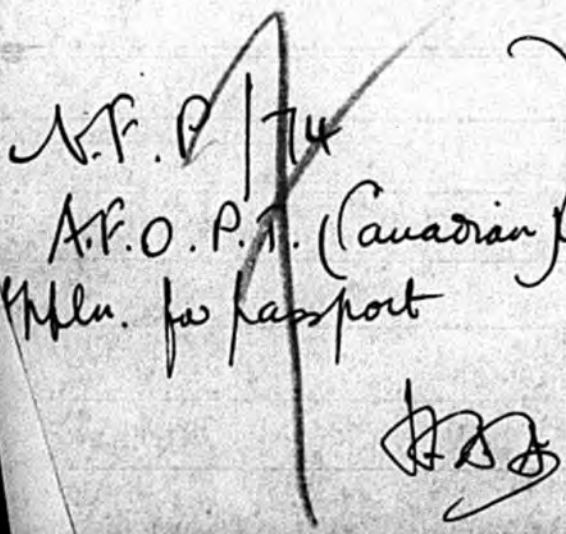 N.F.P/74
A.F.O.P.1. (Canadian)
Appln. for passport